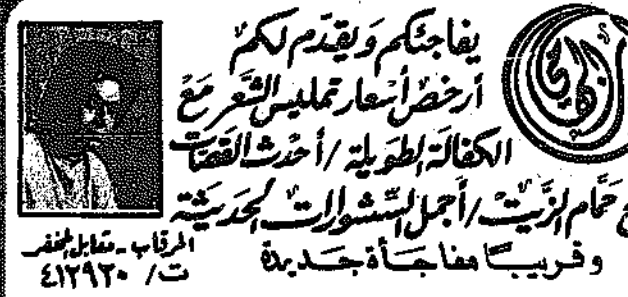 يفاجئكم ويقدّم لكم
أرخص أسعار تمليس الشعر مع
الكفالة الطويلة / أحدث القصّات
حمّام الزيت / أجمل السشوارات الحديثة
وقريباً مفاجأة جديدة
المرقاب - مقابل المخفر
ت / ٤١٢٩٢٠